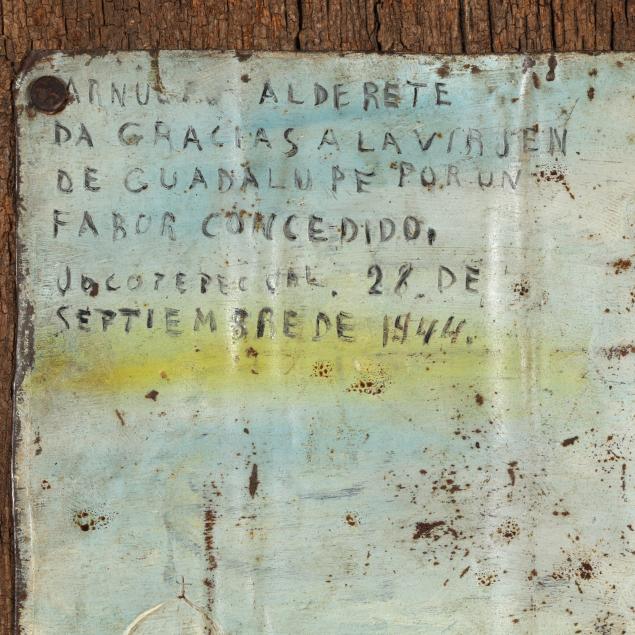 ALDERETE
DA GRACIAS A LA VIRJEN
DE GUADALUPE POR UN
FABOR CONCEDIDO.
JOCOTEPEC JAL. 28 DE
SEPTIEMBRE DE 1944.